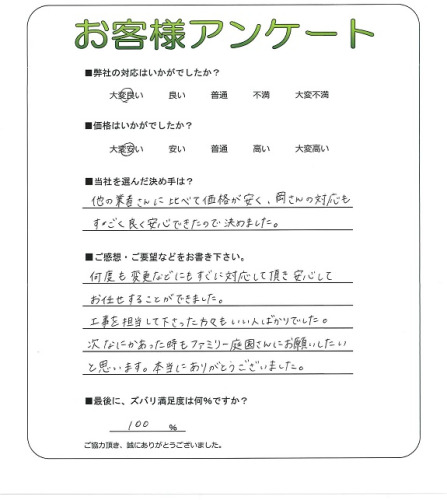 お客様アンケート
■弊社の対応はいかがでしたか？
大変良い 良い 普通 不満 大変不満
■価格はいかがでしたか？
大変安い 安い 普通 高い 大変高い
■当社を選んだ決め手は？
他の業者さんに比べて価格が安く、岡さんの対応も
すっごく良く安心できたので決めました。
■ご感想・ご要望などをお書き下さい。
何度も変更などにもすぐに対応して頂き安心して
お任せすることができました。
工事を担当して下さった方々もいい人ばかりでした。
次なにかあった時もファミリー庭園さんにお願いしたい
と思います。本当にありがとうございました。
■最後に、ズバリ満足度は何%ですか？
100 %
ご協力頂き、誠にありがとうございました。